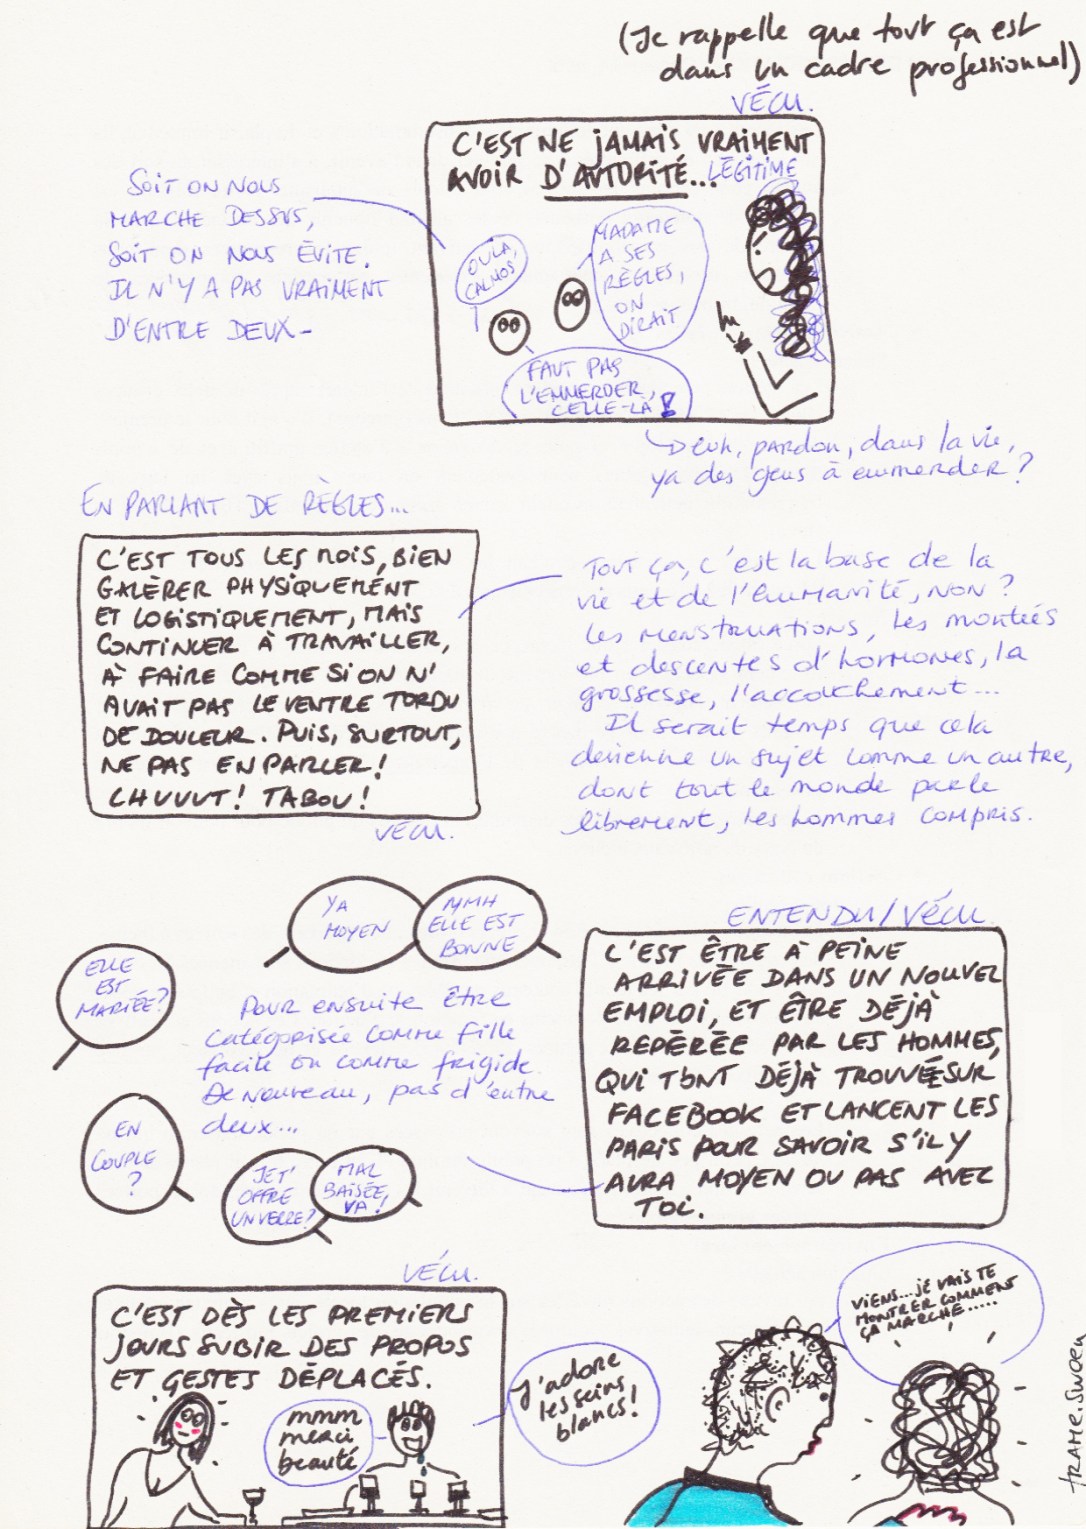 (Je rappelle que tout ça est
dans un cadre professionnel)
VÉCU.
C'EST NE JAMAIS VRAIMENT
AVOIR D'AUTORITÉ... LÉGITIME
SOIT ON NOUS
MARCHE DESSUS,
SOIT ON NOUS ÉVITE.
IL N'Y A PAS VRAIMENT
D'ENTRE DEUX-
OULA
CALMOS
MADAME
A SES
RÈGLES,
ON
DIRAIT
FAUT PAS
L'EMMERDER,
CELLE-LÀ !
Deuh, pardon, dans la vie,
ya des gens à emmerder ?
EN PARLANT DE RÈGLES...
C'EST TOUS LES MOIS, BIEN
GALÉRER PHYSIQUEMENT
ET LOGISTIQUEMENT, MAIS
CONTINUER À TRAVAILLER,
À FAIRE COMME SI ON N'
AVAIT PAS LE VENTRE TORDU
DE DOULEUR. PUIS, SURTOUT,
NE PAS EN PARLER !
CHUUUT ! TABOU !
VÉCU.
TOUT ça, c'est la base de la
vie et de l'humanité, NON ?
Les MENSTRUATIONS, les montées
et descentes d'hormones, la
grossesse, l'accouchement...
Il serait temps que cela
devienne un sujet comme un autre,
dont tout le monde parle
librement, les hommes compris.
YA
MOYEN
MMH
ELLE EST
BONNE
ELLE
EST
MARIÉE ?
Pour ensuite être
catégorisée comme fille
facile ou comme frigide.
De nouveau, pas d'entre
deux...
EN
COUPLE
?
JE T'
OFFRE
UN VERRE ?
MAL
BAISÉE,
VA !
ENTENDU/VÉCU.
C'EST ÊTRE À PEINE
ARRIVÉE DANS UN NOUVEL
EMPLOI, ET ÊTRE DÉJÀ
REPÉRÉE PAR LES HOMMES,
QUI T'ONT DÉJÀ TROUVÉE SUR
FACEBOOK ET LANCENT LES
PARIS POUR SAVOIR S'IL Y
AURA MOYEN OU PAS AVEC
TOI.
VÉCU.
C'EST DÈS LES PREMIERS
JOURS SUBIR DES PROPOS
ET GESTES DÉPLACÉS.
mmm
merci
beauté
J'adore
les seins
blancs !
VIENS... JE VAIS TE
MONTRER COMMENT
ÇA MARCHE.....
TRAME.SWOEN